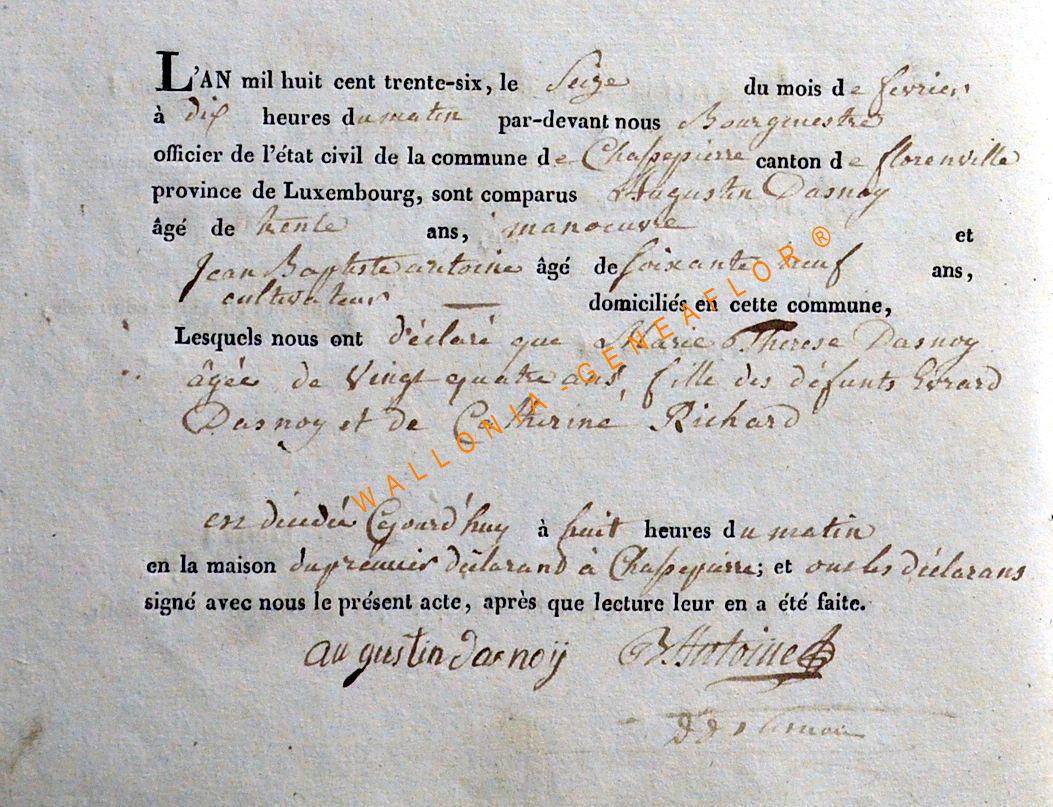 L'AN mil huit cent trente-six, le Seize du mois de fevrier
à dix heures du matin par-devant nous Bourgmestre
officier de l'état civil de la commune de Chassepierre canton de florenville
province de Luxembourg, sont comparus Augustin Dasnoy
âgé de trente ans, manoeuvre et
Jean Baptiste antoine âgé de soixante neuf ans,
cultivateur domiciliés en cette commune,
Lesquels nous ont déclaré que Marie Therese Dasnoy
âgée de Vingt quatre ans, fille des défunts Evrard
Dasnoy et de Catherine Richard
est décédée Cejourd'huy à huit heures du matin
en la maison du premier déclarand à Chassepierre; et ont les déclarans
signé avec nous le présent acte, après que lecture leur en a été faite.
augustin dasnoij B. Antoine
WALLONIA-GENEAFLOR ®